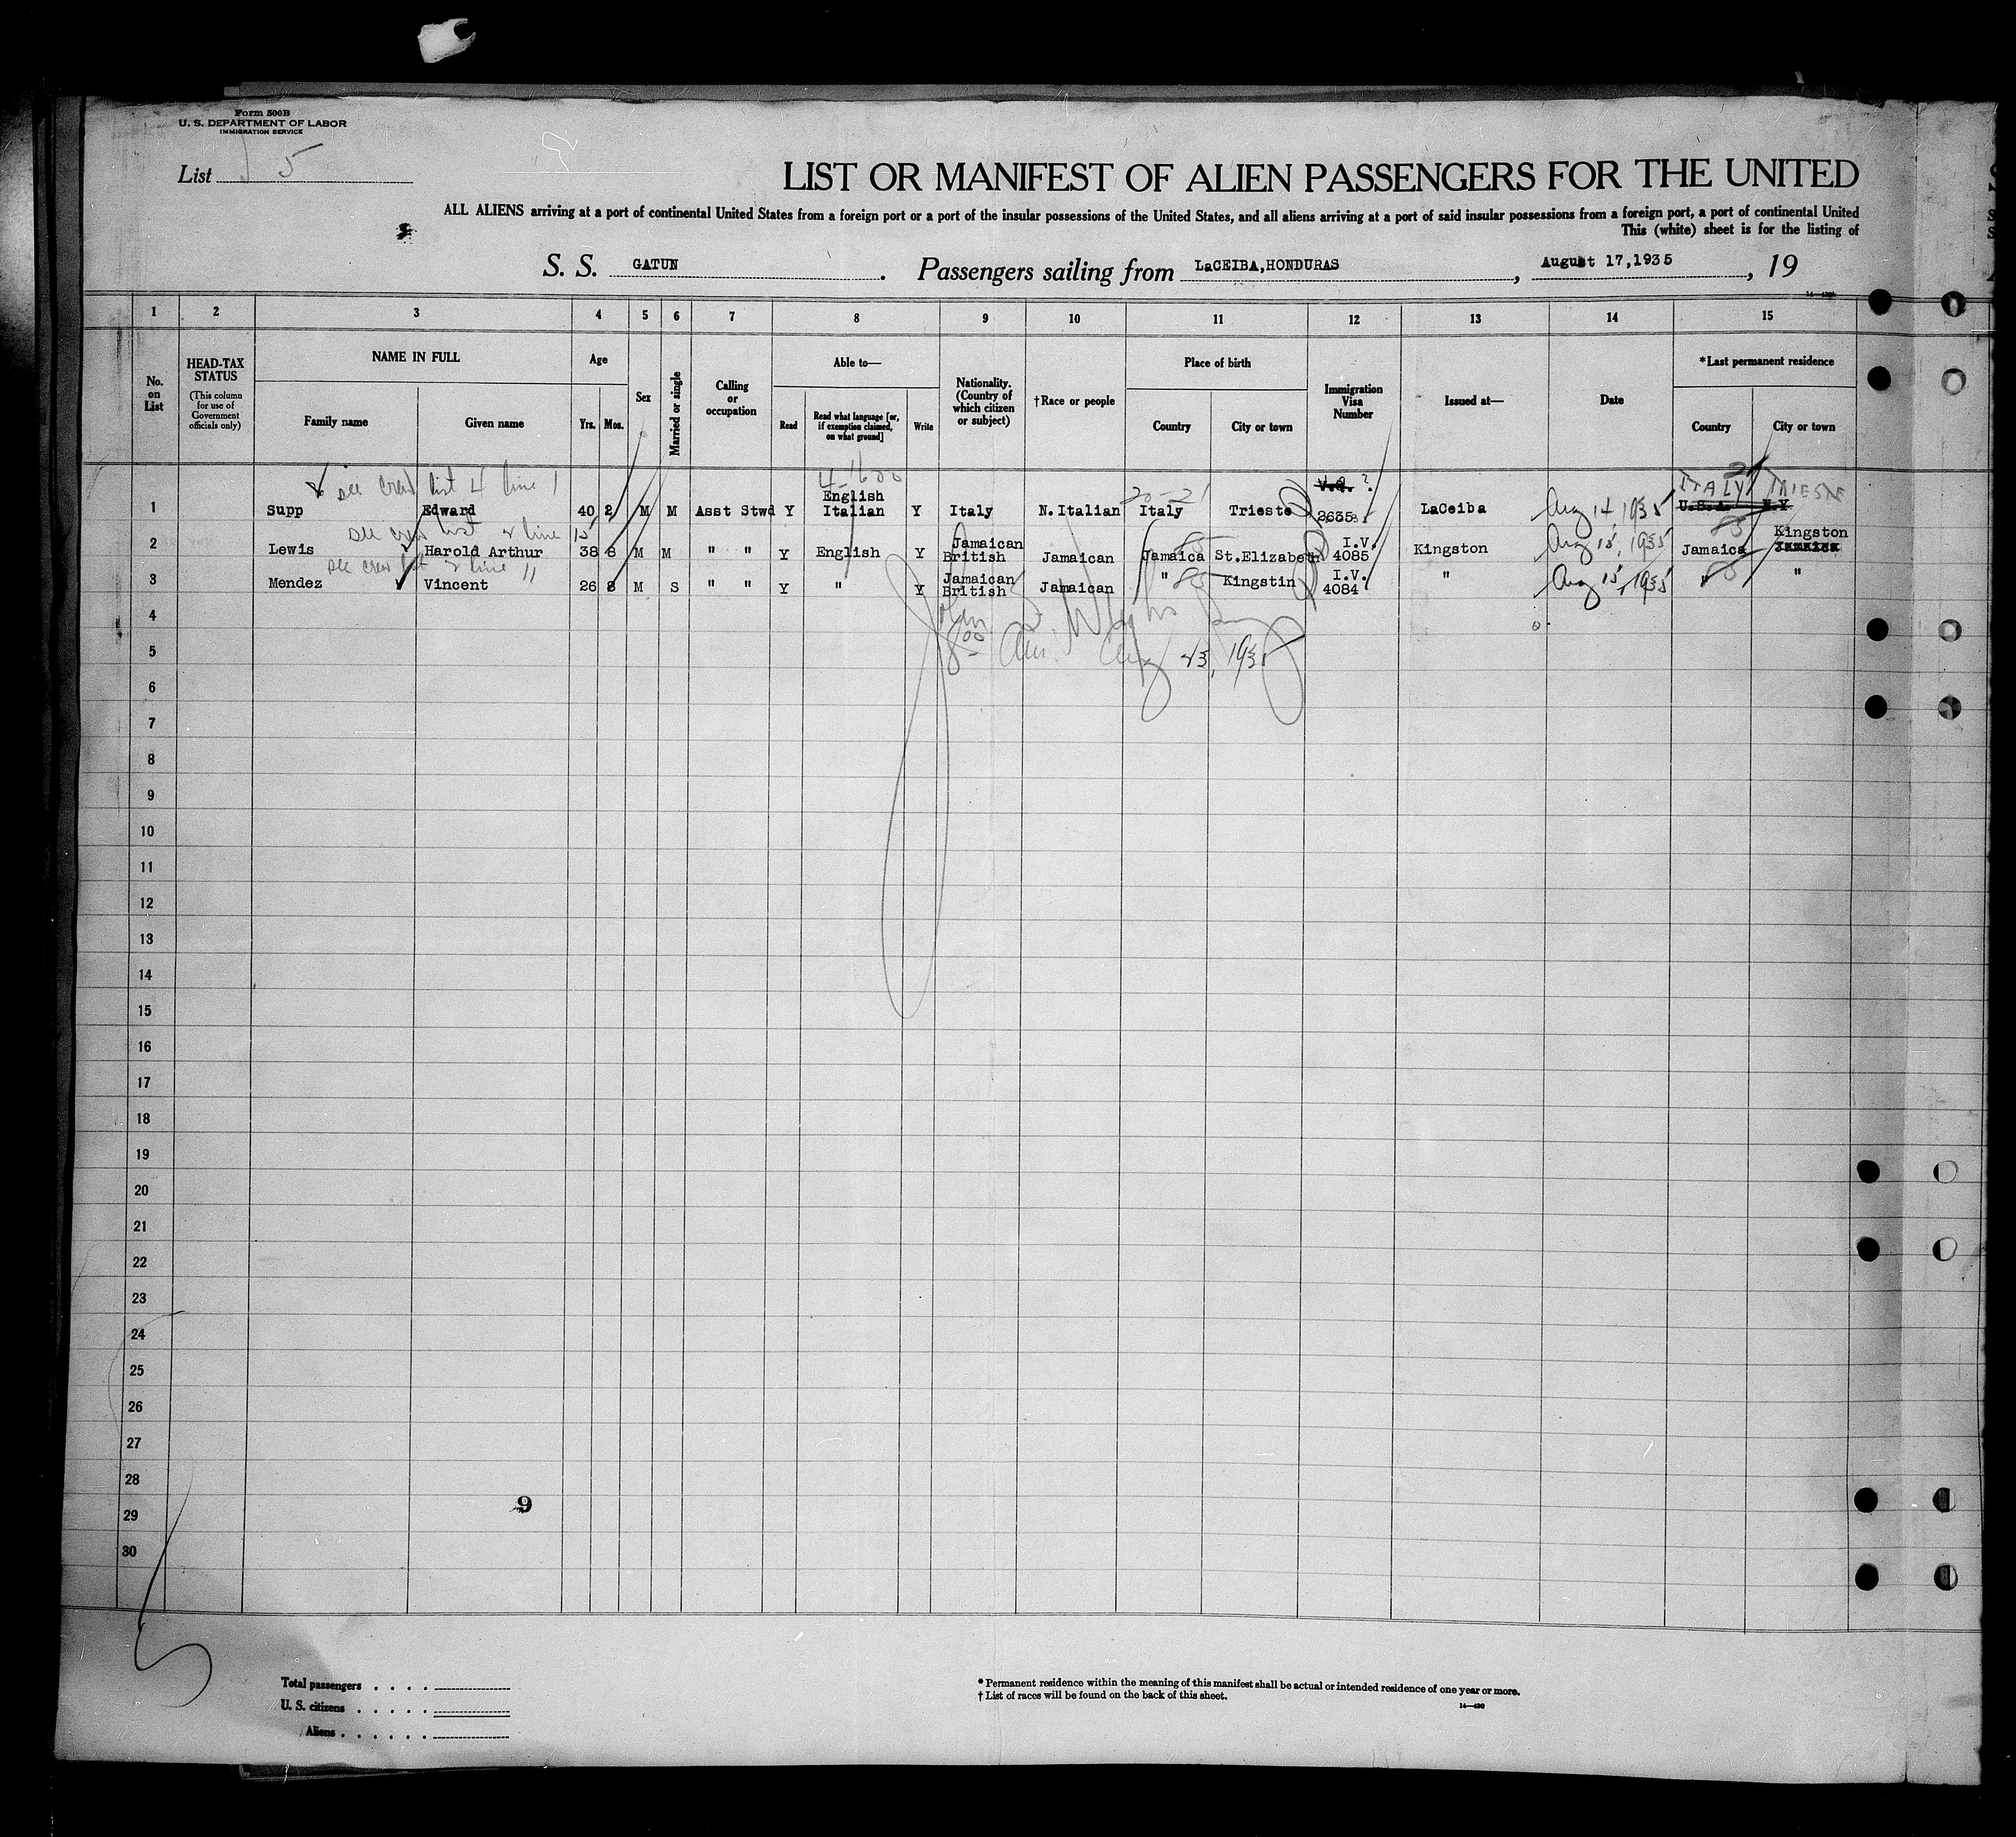 Form 500B
U. S. DEPARTMENT OF LABOR
IMMIGRATION SERVICE
List 5
LIST OR MANIFEST OF ALIEN PASSENGERS FOR THE UNITED
ALL ALIENS arriving at a port of continental United States from a foreign port or a port of the insular possessions of the United States, and all aliens arriving at a port of said insular possessions from a foreign port, a port of continental United
This (white) sheet is for the listing of
S. S. GATUN. Passengers sailing from LaCEIBA,HONDURAS, August 17,1935, 19
14—430
1 2 3 4 5 6 7 8 9 10 11 12 13 14 15
No. on List
HEAD-TAX STATUS
(This column for use of Government officials only)
NAME IN FULL
Family name Given name
Age
Yrs. Mos.
Sex
Married or single
Calling or occupation
Able to—
Read
Read what language [or, if exemption claimed, on what ground]
Write
Nationality. (Country of which citizen or subject)
†Race or people
Place of birth
Country City or town
Immigration Visa Number
Issued at—
Date
*Last permanent residence
Country City or town
see crew list 4 line 1
4-1600
20-21
V.Q. ?
ITALY TRIESTE
1 Supp Edward 40 2 M M Asst Stwd Y English Italian Y Italy N.Italian Italy Trieste 2635 LaCeiba Aug 14, 1935 U.S.A. N.Y
see crew list line 15
2 Lewis Harold Arthur 38 8 M M " " Y English Y Jamaican British Jamaican Jamaica 85 St.Elizabeth I.V. 4085 Kingston Aug 15, 1935 Jamaica 85 Kingston Jamaica
see crew list line 11
3 Mendez Vincent 26 8 M S " " Y " Y Jamaican British Jamaican " 85 Kingstin I.V. 4084 " Aug 15, 1935 " 85 "
4
5 Aug 23, 1935
6
7
8
9
10
11
12
13
14
15
16
17
18
19
20
21
22
23
24
25
26
27
28
9
29
30
Total passengers . . . .
U. S. citizens . . . . .
Aliens . . . . . .
* Permanent residence within the meaning of this manifest shall be actual or intended residence of one year or more.
† List of races will be found on the back of this sheet.
14—430